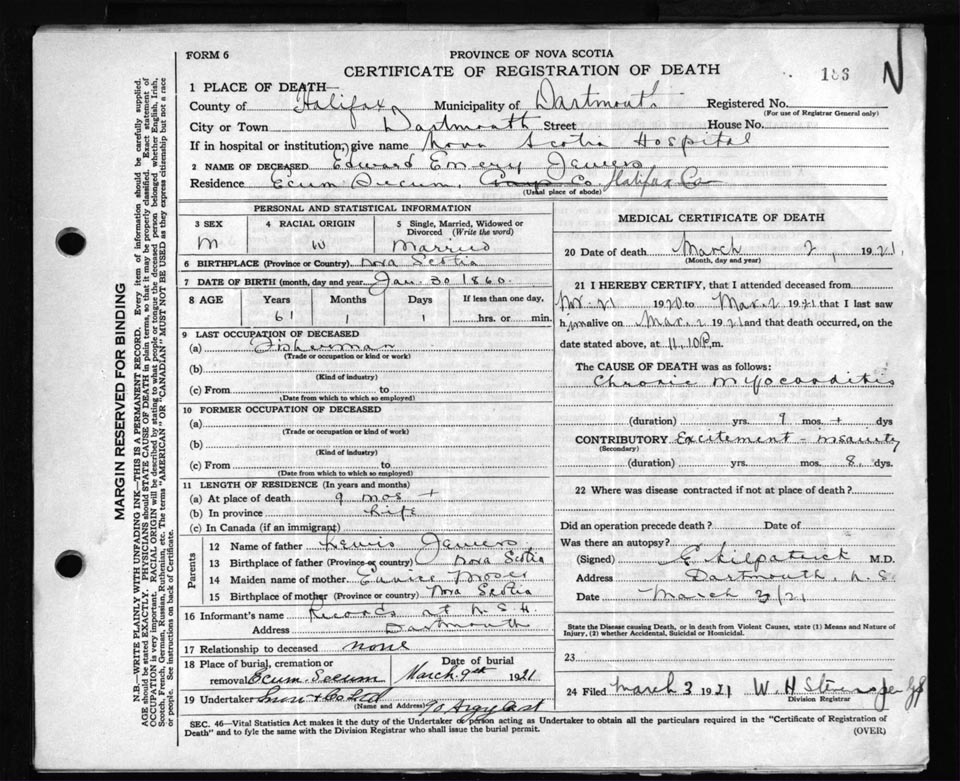 FORM 6
PROVINCE OF NOVA SCOTIA
CERTIFICATE OF REGISTRATION OF DEATH
186
N
1 PLACE OF DEATH—
County of Halifax Municipality of Dartmouth Registered No.
(For use of Registrar General only)
City or Town Dartmouth Street House No.
If in hospital or institution, give name Nova Scotia Hospital
2 NAME OF DECEASED Edward Emery Jewers
Residence Ecum Secum, Guys Co. Halifax Co
(Usual place of abode)
PERSONAL AND STATISTICAL INFORMATION
3 SEX 4 RACIAL ORIGIN 5 Single, Married, Widowed or Divorced (Write the word)
M W Married
6 BIRTHPLACE (Province or Country) Nova Scotia
7 DATE OF BIRTH (month, day and year) Jan. 30 1860.
8 AGE Years Months Days If less than one day,
61 1 1 hrs. or min.
9 LAST OCCUPATION OF DECEASED
(a) Fisherman
(Trade or occupation or kind or work)
(b)
(Kind of industry)
(c) From to
(Date from which to which so employed)
10 FORMER OCCUPATION OF DECEASED
(a)
(Trade or occupation or kind of work)
(b)
(Kind of industry)
(c) From to
(Date from which to which so employed)
11 LENGTH OF RESIDENCE (In years and months)
(a) At place of death 9 mos +
(b) In province Life
(c) In Canada (if an immigrant)
Parents
12 Name of father Lewis Jewers
13 Birthplace of father (Province or country) Nova Scotia
14 Maiden name of mother Moser
15 Birthplace of mother (Province or country) Nova Scotia
16 Informant's name Records at N.S.H.
Address Dartmouth
17 Relationship to deceased none
18 Place of burial, cremation or removal Ecum Secum
Date of burial March 9th 1921
19 Undertaker Snow & Co Ltd
(Name and Address) 90 Argyle St
MEDICAL CERTIFICATE OF DEATH
20 Date of death March 2, 1921
(Month, day and year)
21 I HEREBY CERTIFY, that I attended deceased from
21 1920 to Mar. 2 1921 that I last saw
him alive on Mar. 2 1921 and that death occurred, on the
date stated above, at 11.10 P.m.
The CAUSE OF DEATH was as follows:
Chronic Myocarditis
(duration) yrs. 9 mos. + dys
CONTRIBUTORY Excitement - Insanity
(Secondary)
(duration) yrs. mos. 8 dys.
22 Where was disease contracted if not at place of death?
Did an operation precede death? Date of
Was there an autopsy?
(Signed) E Kilpatrick M.D.
Address Dartmouth, N.S.
Date March 3/21
State the Disease causing Death, or in death from Violent Causes, state (1) Means and Nature of Injury, (2) whether Accidental, Suicidal or Homicidal.
23
24 Filed March 3 1921 W. H.
Division Registrar
SEC. 46—Vital Statistics Act makes it the duty of the Undertaker or person acting as Undertaker to obtain all the particulars required in the "Certificate of Registration of
Death" and to fyle the same with the Division Registrar who shall issue the burial permit.
(OVER)
MARGIN RESERVED FOR BINDING
N.B.—WRITE PLAINLY WITH UNFADING INK—THIS IS A PERMANENT RECORD. Every item of information should be carefully supplied.
AGE should be stated EXACTLY. PHYSICIANS should STATE CAUSE OF DEATH in plain terms, so that it may be properly classified. Exact statement of
OCCUPATION is very important. RACIAL ORIGIN will be described by stating to what people or tongue the deceased person belonged whether English, Irish,
Scotch, French, German, Russian, Ruthenian, etc. The terms "AMERICAN" OR "CANADIAN" MUST NOT BE USED as they express citizenship but not a race
or people. See instructions on back of Certificate.